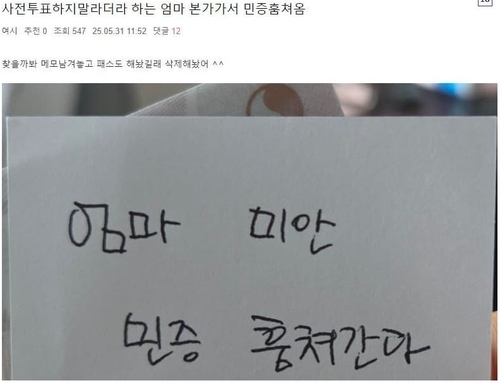 사전투표하지말라더라 하는 엄마 본가가서 민증훔쳐옴
여시 추천 0 조회 547 25.05.31 11:52 댓글 12
찾을까봐 메모남겨놓고 패스도 해놨길래 삭제해놨어 ^^
엄마 미안
민증 훔쳐간다